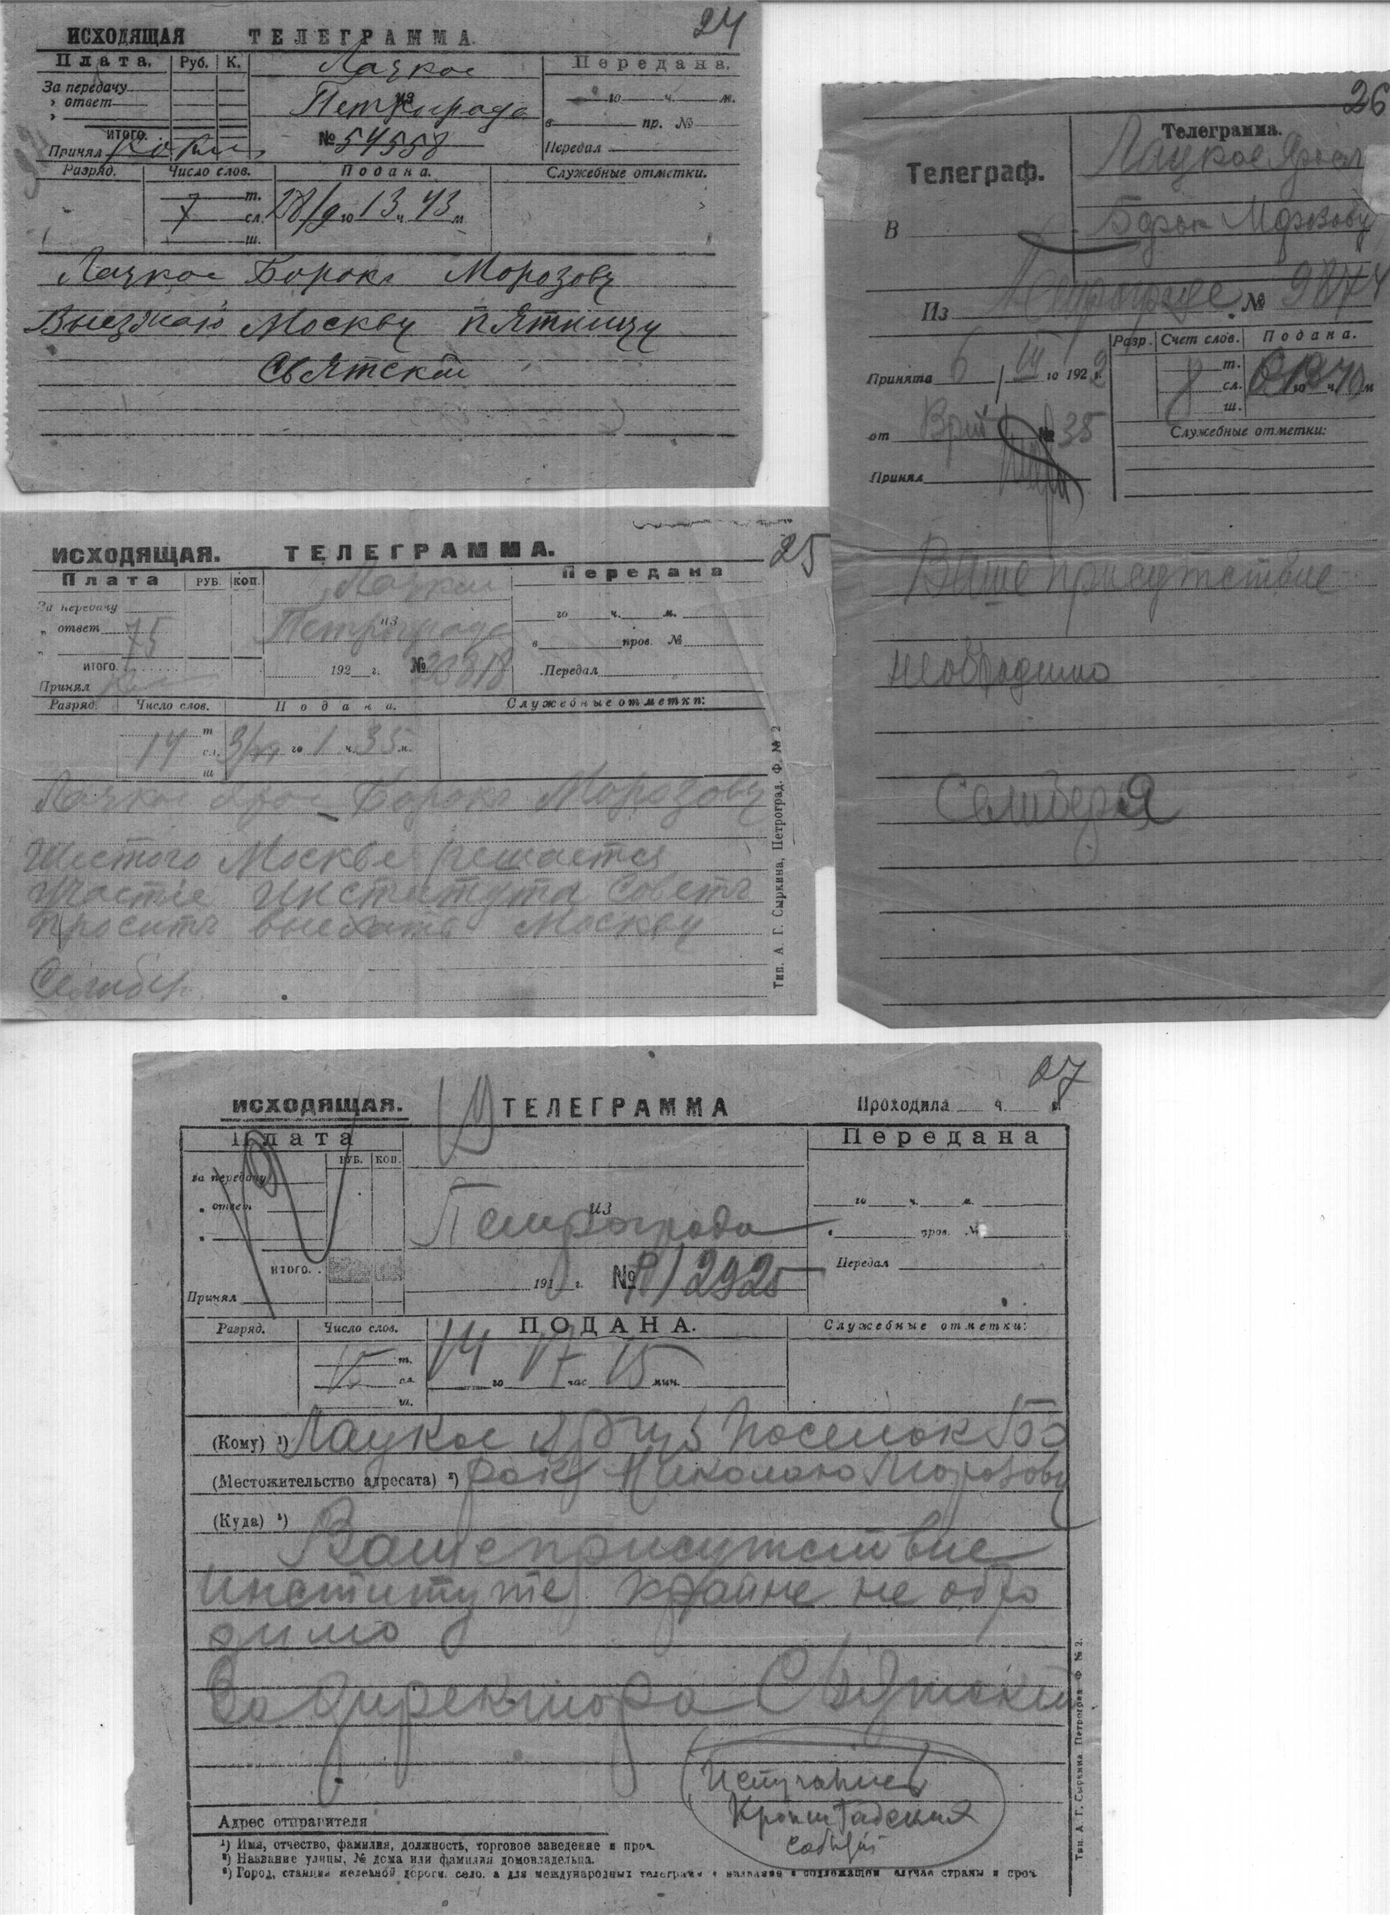 24
ИСХОДЯЩАЯ ТЕЛЕГРАММА.
Плата. Руб. К. Лацкое Передана.
За передачу го ч. м.
" ответ из Петрограда в пр. №
ИТОГО. № 54558
Принял Передал
Разряд. Число слов. Подана. Служебные отметки.
т.
7 сл. го 13 ч. 43 м
ш.
Лацкое Борокъ Морозову
Выезжаю Москву пятницу
Святский
25
ИСХОДЯЩАЯ. ТЕЛЕГРАММА.
Плата РУБ. КОП. Лацкое Передана
За передачу го ч. м.
" ответ 75 Петрограда из в пров. №
ИТОГО. 192 г. № Передал
Принял
Разряд. Число слов. Подана. Служебные отметки:
т
14 сл. го 1 ч. 35 м.
ш
Лацкое Борокъ Морозову
Шестого Москве решается
участие Института Советъ
проситъ выехать Москву
Селибер
Тип. А. Г. Сыркина, Петроград. Ф. № 2
26
Телеграмма.
Телеграф. Лацкое Яросл
В Борок Морозову
Из Петрограде № 9874
Разр. Счет слов. Подана.
Принята 6 / III го 1922 г. т.
8 сл. го ч. 40 м
ш.
от № 35 Служебные отметки:
Принял
Ваше присутствие
необходимо
Селибер
27
ИСХОДЯЩАЯ. ТЕЛЕГРАММА Проходила ч. м.
Плата РУБ. КОП. Передана
за передачу го ч. м.
" ответ из Петрограда в пров. №
ИТОГО. 191 г. № 2925 Передал
Принял
Разряд. Число слов. ПОДАНА. Служебные отметки:
т. 14 17 15
15 сл. го час мин.
ш.
(Кому) ¹) Лацкое Поселок Бо
(Местожительство адресата) ²) рок Николаю Морозову
(Куда) ³)
Ваше присутствие
институте крайне не обхо
димо
За директора Святский
Испугались
Кронштадских
событий
Адрес отправителя
¹) Имя, отчество, фамилия, должность, торговое заведение и проч.
²) Название улицы, № дома или фамилия домовладельца.
³) Город, станция железной дороги, село, а для международных телеграмм и название в подлежащем случае страны и проч.
Тип. А. Г. Сыркина. Петроград. Ф № 2.